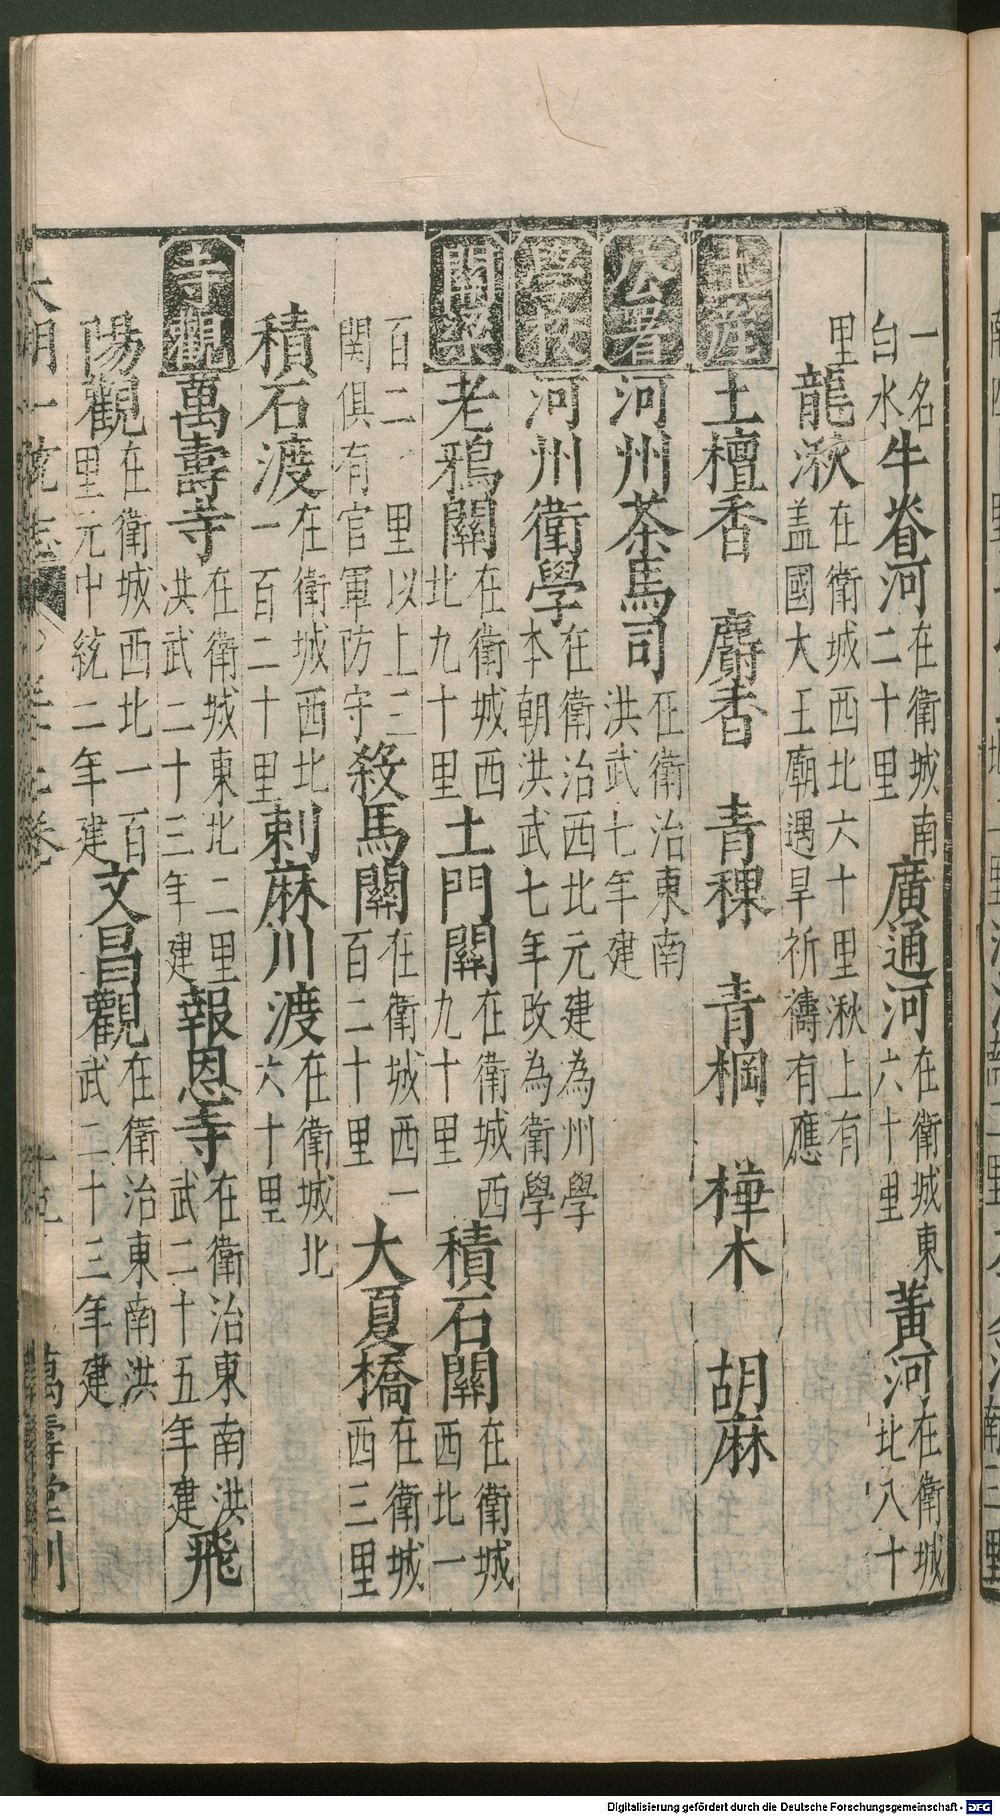 一名白水牛脊河在衛城南二十里廣通河在衛城東六十里黃河在衛城北八十
里龍湫在衛城西北六十里湫上有盖國大王廟遇旱祈禱有應
土産土檀香 麝香 青稞 青棡 樺木 胡麻
公署河州茶馬司在衛治東南洪武七年建
學校河州衛學在衛治西北元建為州學本朝洪武七年改為衛學
關梁老鴉關在衛城西北九十里土門關在衛城西九十里積石關在衛城西北一
百二十里以上三関俱有官軍防守殺馬關在衛城西一百二十里大夏橋在衛城西三里
積石渡在衛城西北一百二十里剌麻川渡在衛城北六十里
寺觀萬壽寺在衛城東北二里洪武二十三年建報恩寺在衛治東南洪武二十五年建飛
陽觀在衛城西北一百里元中統二年建文昌觀在衛治東南洪武二十三年建
大明一統志 卷 萬壽堂刊
Digitalisierung gefördert durch die Deutsche Forschungsgemeinschaft - DFG